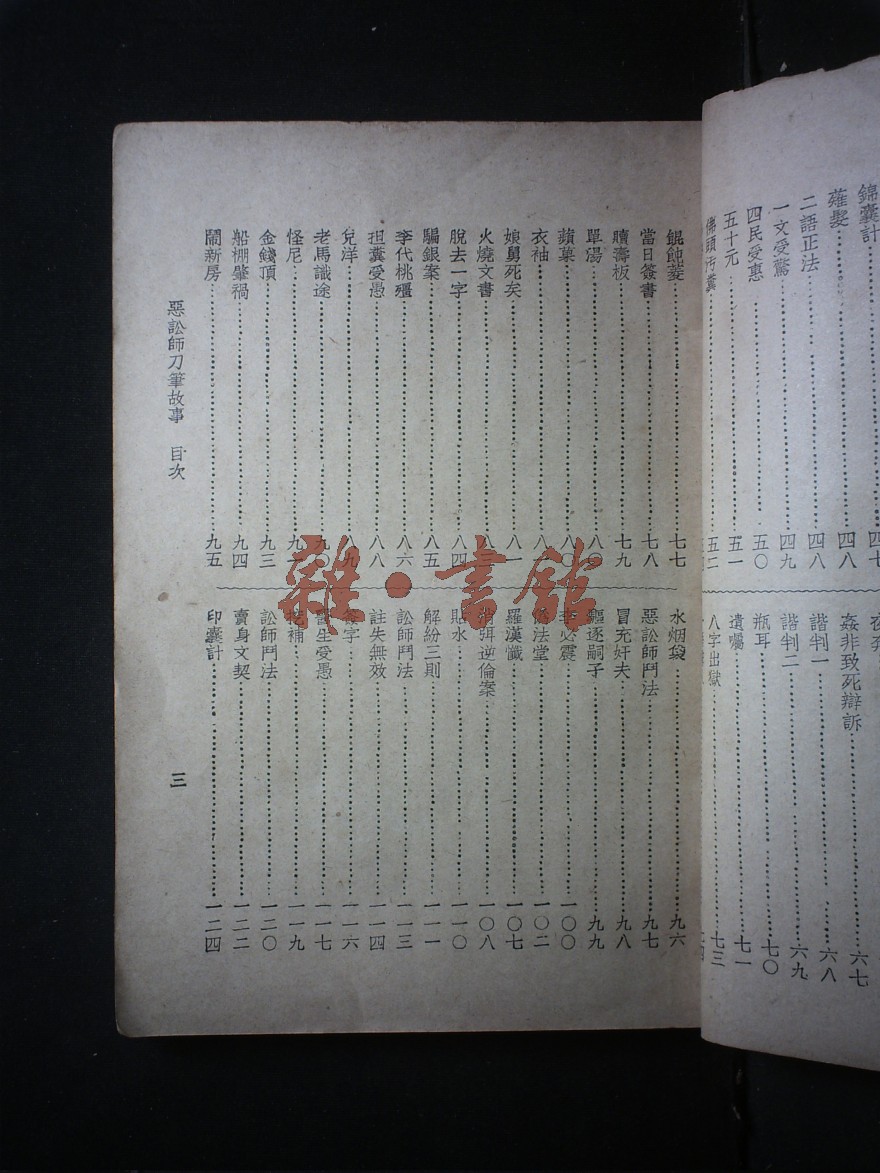 錦囊計
薙髮……四八
二語正法……四八
一文受驚……四九
四民受惠……五〇
五十元……五一
佛頭汚糞……五二
姦非致死辯訴……六七
諧判一……六八
諧判二……六九
瓶耳……七〇
遺囑……七一
八字出獄……七三
餛飩菱……七七
當日簽書……七八
贖壽板……七九
單湯……八〇
蘋菓……八〇
衣袖
娘舅死矣……八一
火燒文書
脫去一字……八四
騙銀案……八五
李代桃殭……八六
担糞受愚……八八
兌洋……八九
老馬識途……九〇
怪尼……九一
金錢頂……九三
船棚肇禍……九四
鬧新房……九五
水烟袋……九六
惡訟師鬥法……九七
冒充奸夫……九八
驅逐嗣子……九九
必震……一〇〇
法堂……一〇二
羅漢懺……一〇七
逆倫案……一〇八
貼水……一一〇
解紛三則……一一一
訟師鬥法……一一三
註失無效……一一四
字……一一六
醫生受愚……一一七
挖補……一一九
訟師鬥法……一二〇
賣身文契……一二二
印囊計……一二四
惡訟師刀筆故事 目次
三
雜·書館